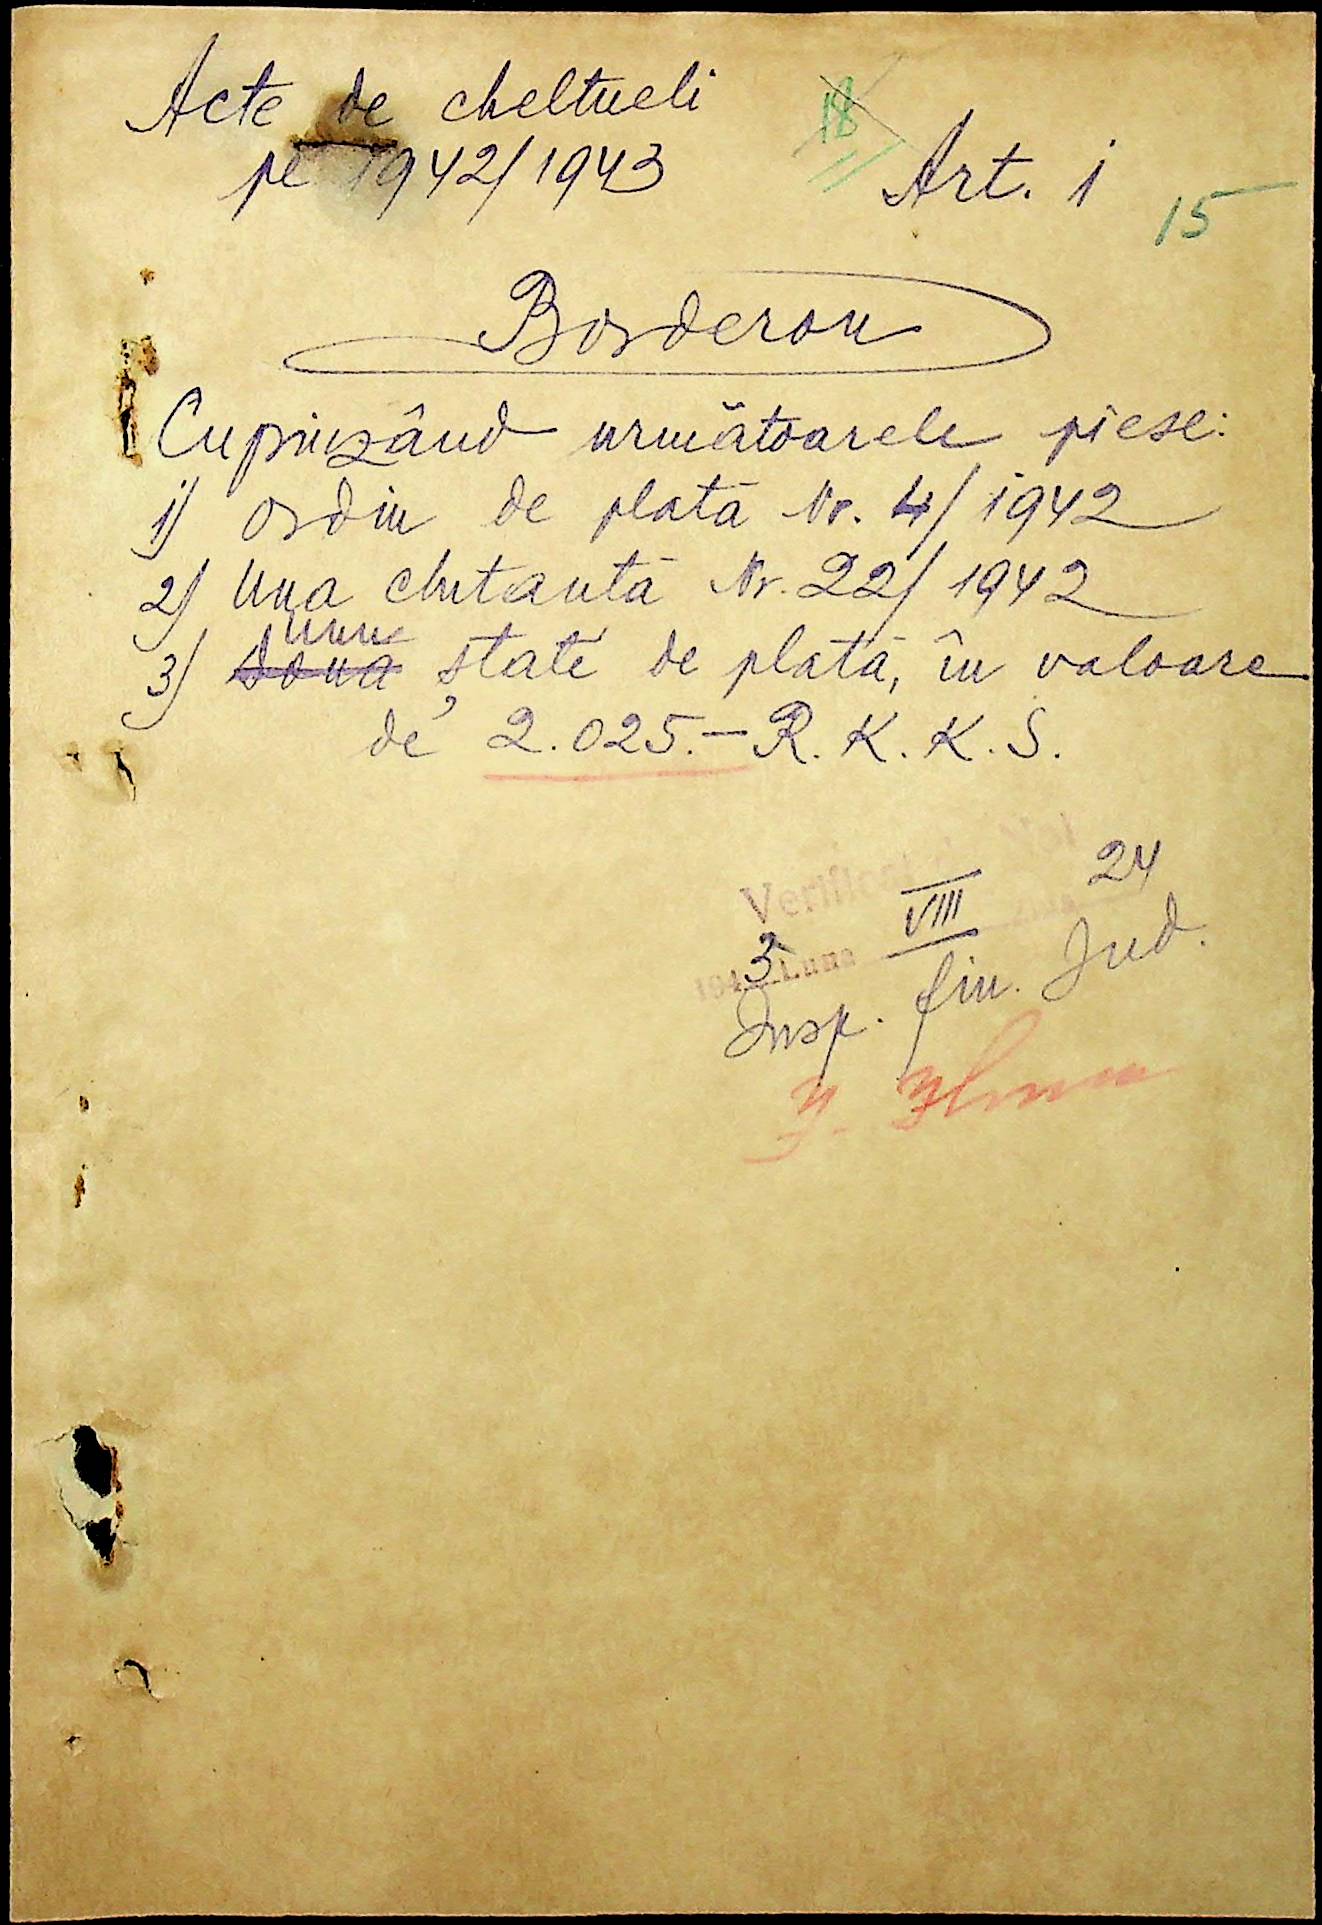 Acte de cheltueli
pe 1942/1943
18
Art. 1
15
Borderou
Cuprinzând următoarele piese:
1) ordin de plată Nr. 4/1942
2) Una chitantă Nr. 22/1942
unu
3) două state de plată, în valoare
de 2.025.- R.K.K.S.
Verificat
24
194 3 Luna VIII Ziua
Insp. fin. Jud.